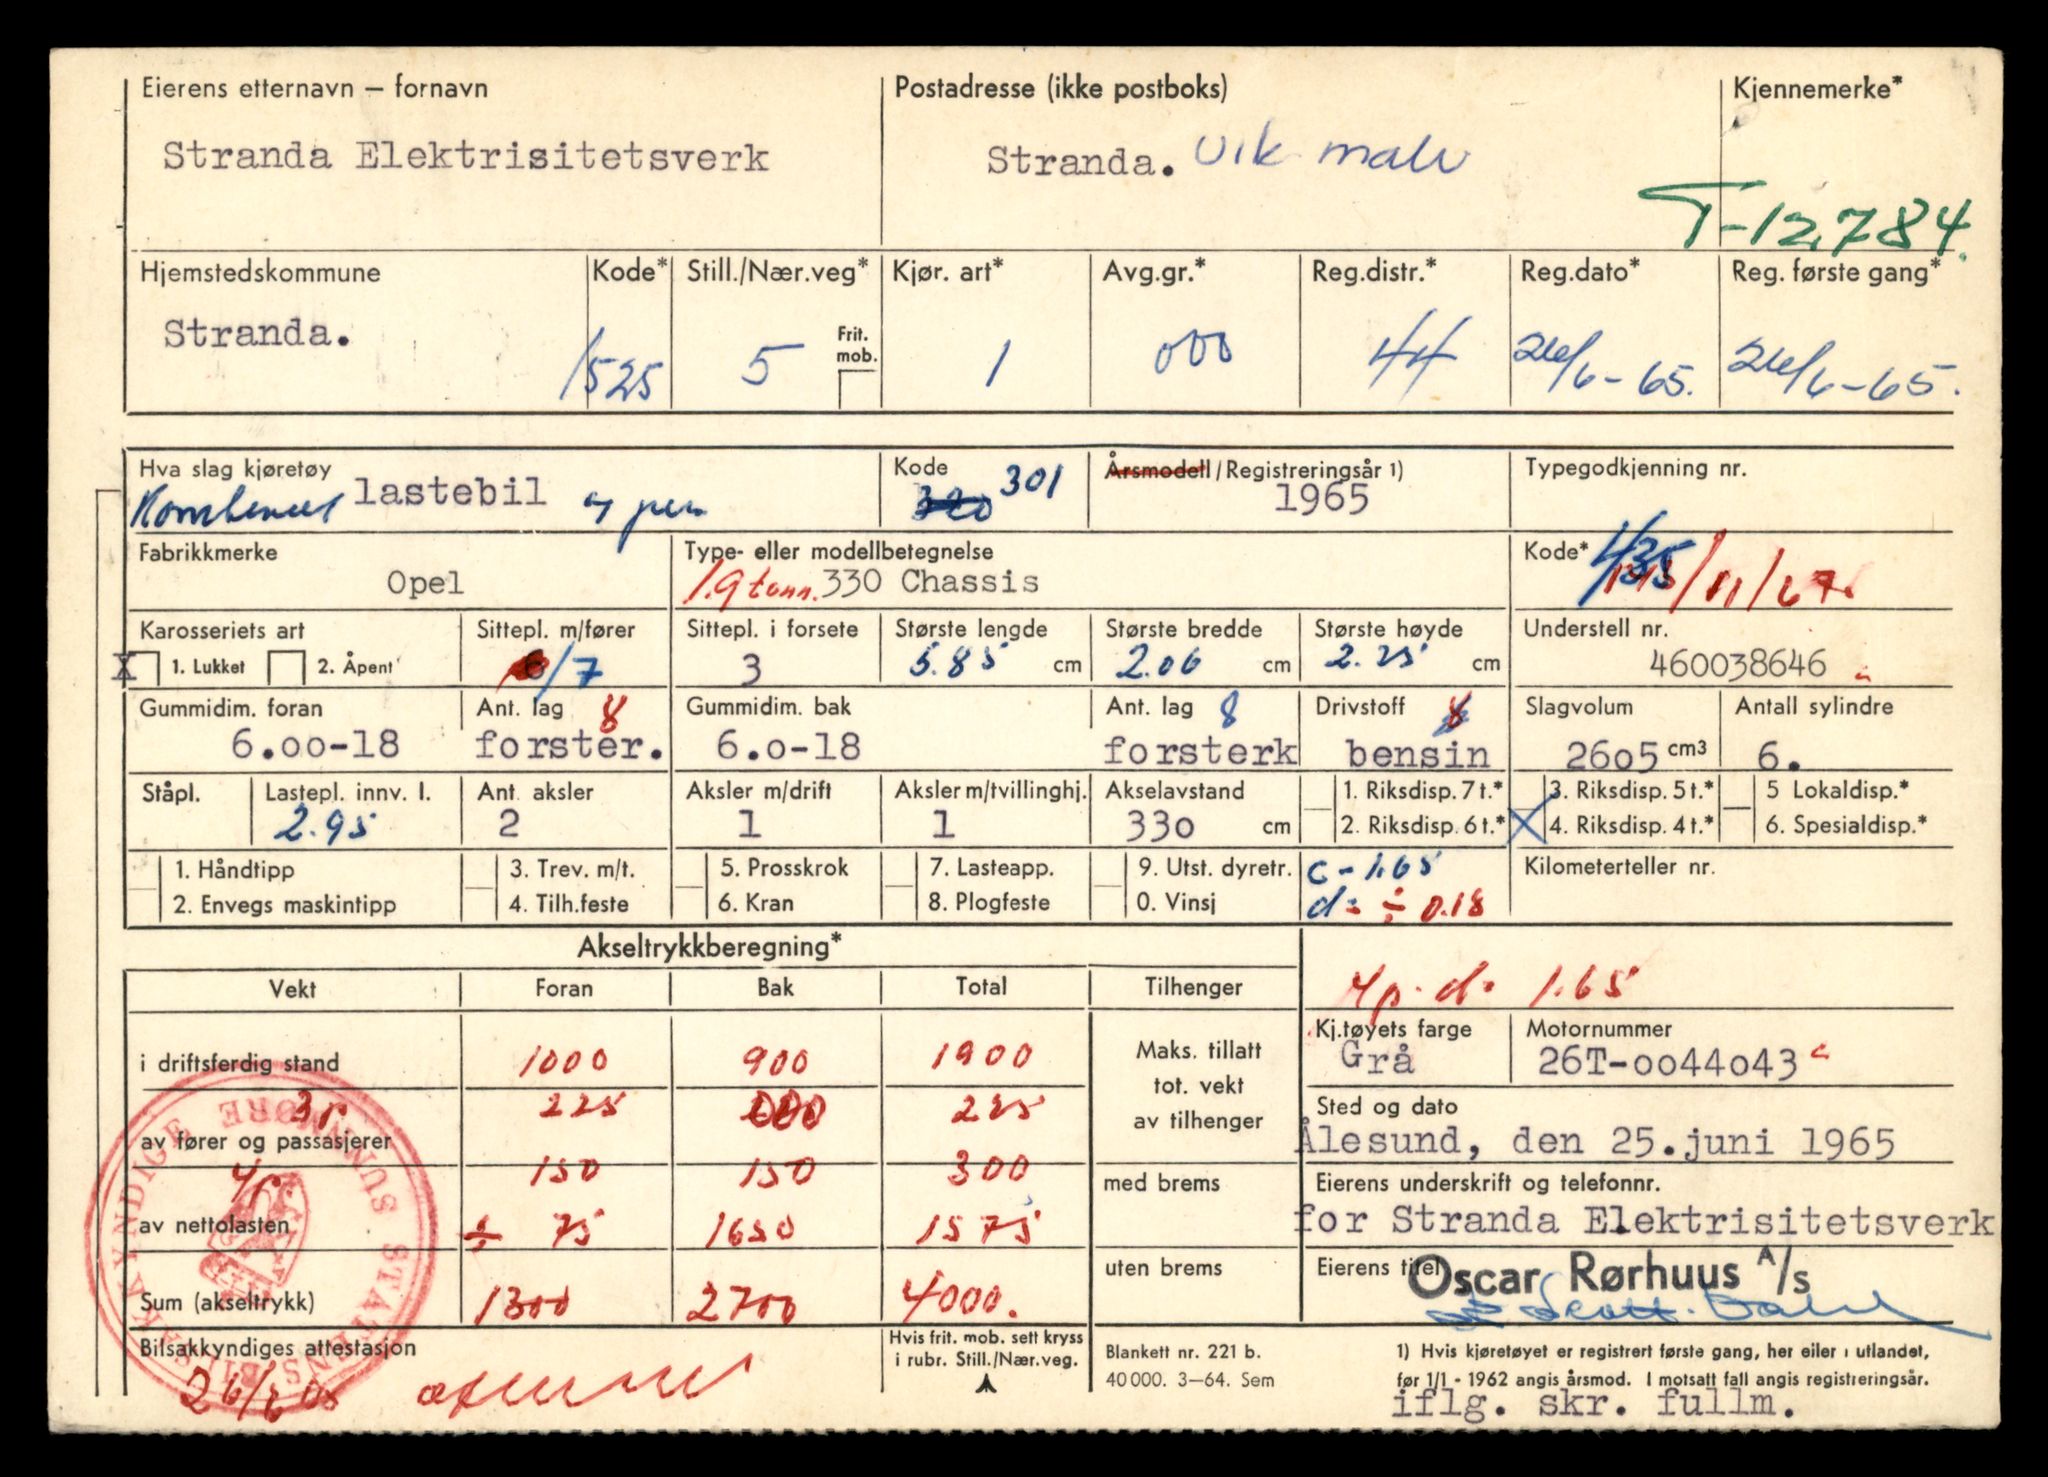 Eierens etternavn – fornavn
Stranda Elektrisitetsverk
Postadresse (ikke postboks)
Stranda.
Kjennemerke*
T-12784.
Hjemstedskommune
Stranda.
Kode*
1525
Still./Nær.veg*
5
Frit. mob.
Kjør. art*
1
Avg.gr.*
000
Reg.distr.*
44
Reg.dato*
26/6-65.
Reg. første gang*
26/6-65.
Hva slag kjøretøy
Kombinert lastebil
Kode
320 301
Årsmodell/Registreringsår 1)
1965
Typegodkjenning nr.
Fabrikkmerke
Opel
Type- eller modellbetegnelse
1.9 tonn. 330 Chassis
Kode*
Karosseriets art
X 1. Lukket 2. Åpent
Sittepl. m/fører
6/7
Sittepl. i forsete
3
Største lengde
5.85 cm
Største bredde
2.06 cm
Største høyde
2.25 cm
Understell nr.
460038646
Gummidim. foran
6.00-18
Ant. lag 8
forster.
Gummidim. bak
6.0-18
Ant. lag 8
forsterk
Drivstoff 8
bensin
Slagvolum
2605 cm3
Antall sylindre
6.
Ståpl.
Lastepl. innv. l.
2.95
Ant. aksler
2
Aksler m/drift
1
Aksler m/tvillinghj.
1
Akselavstand
330 cm
1. Riksdisp. 7 t.*
2. Riksdisp. 6 t.*
3. Riksdisp. 5 t.*
X 4. Riksdisp. 4 t.*
5 Lokaldisp.*
6. Spesialdisp.*
1. Håndtipp
2. Envegs maskintipp
3. Trev. m/t.
4. Tilh.feste
5. Prosskrok
6. Kran
7. Lasteapp.
8. Plogfeste
9. Utst. dyretr.
0. Vinsj
c - 1.65
d = ÷ 0.18
Kilometerteller nr.
Akseltrykkberegning*
Vekt Foran Bak Total Tilhenger
4p. d = 1.65
i driftsferdig stand 1000 900 1900
3p 225 000 225
av fører og passasjerer
4p. 150 150 300
av nettolasten ÷ 75 1650 1575
Sum (akseltrykk) 1300 2700 4000.
Maks. tillatt
tot. vekt
av tilhenger
med brems
uten brems
Kj.tøyets farge
Grå
Motornummer
26T-0044043
Sted og dato
Ålesund, den 25.juni 1965
Eierens underskrift og telefonnr.
for Stranda Elektrisitetsverk
Eierens titel
Oscar Rørhuus A/s
Bilsakkyndiges attestasjon
26/6 65
STATENS BILSAKKYNDIGE SUNNMØRE
Hvis frit. mob. sett kryss
i rubr. Still./Nær.veg.
Blankett nr. 221 b.
40 000. 3–64. Sem
1) Hvis kjøretøyet er registrert første gang, her eller i utlandet,
før 1/1 - 1962 angis årsmod. I motsatt fall angis registreringsår.
iflg. skr. fullm.